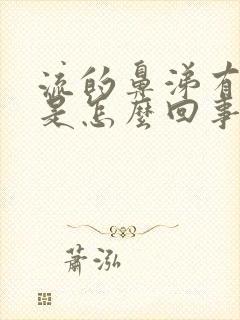 流的鼻涕有
是怎麼回事
蕭泓